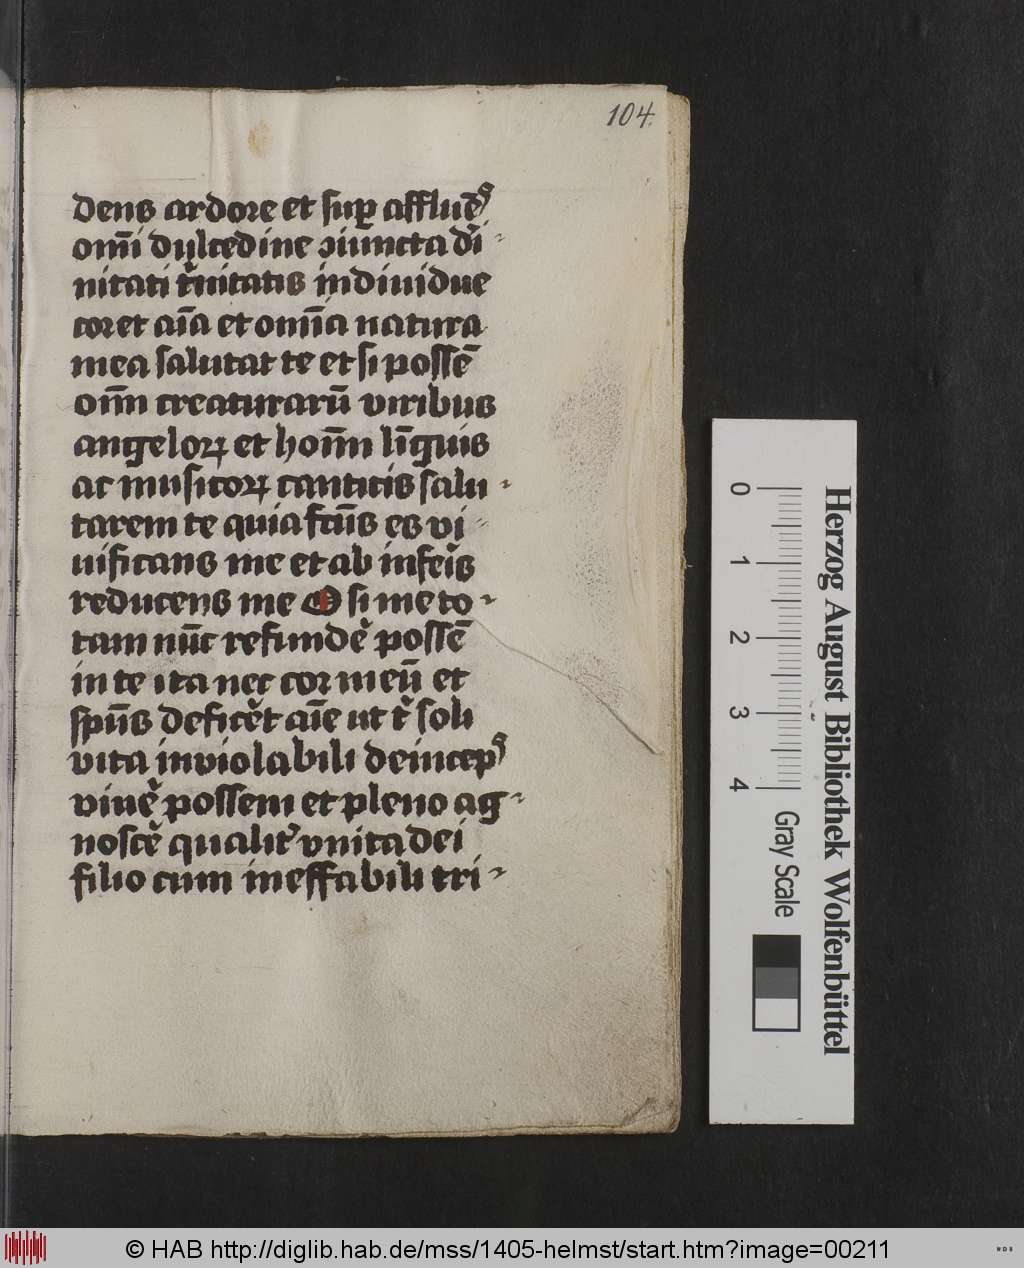 104.
dens ardore et suꝑ affluēs
om̄i dulcedine ↄiuncta di-
nitati tͥnitatis indiuidue
cor et aīa et om̄ia natura
mea salutat te et si possē
om̄m creaturarū viribus
angeloꝝ et hoīm līguis
ac musicoꝝ canticis salu-
tarem te quia fcūs es vi-
uificans me et ab infeis
reducens me O si me to-
tam nūc refundē possē
in te ita nec cor meū et
spūs deficēt aīe ut tͥ soli
vita inviolabili deinceps
viuē possem et pleno ag-
noscē qualit' vnita dei
filio cum ineffabili tri-
Herzog August Bibliothek Wolfenbüttel
0 1 2 3 4 Gray Scale
© HAB http://diglib.hab.de/mss/1405-helmst/start.htm?image=00211